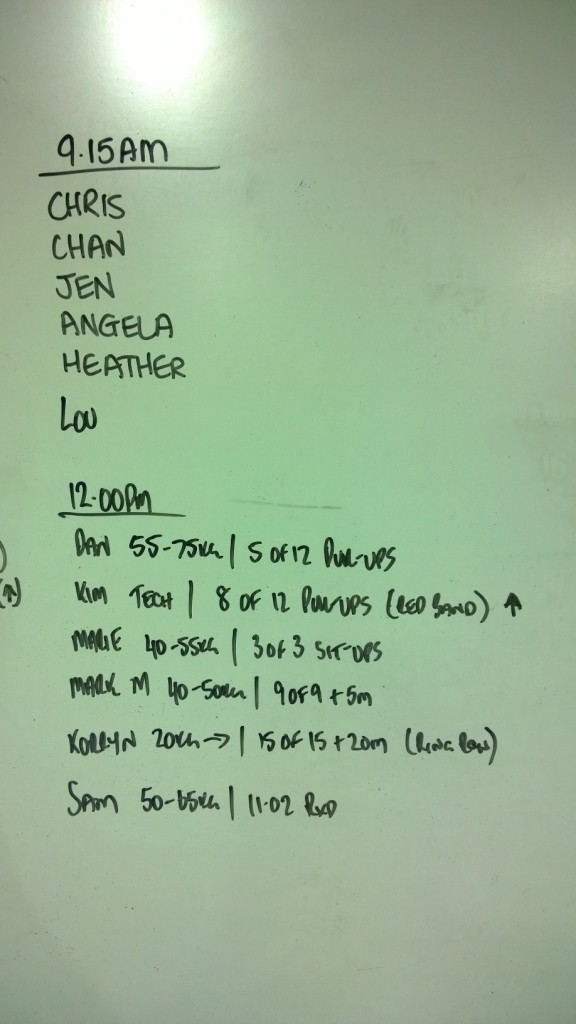 9.15AM
CHRIS
CHAN
JEN
ANGELA
HEATHER
LOU
12.00PM
DAN 55-75KG | 5 OF 12 PULL-UPS
KIM TECH | 8 OF 12 PULL-UPS (RED BAND) ↑
MARIE 40-55KG | 3 OF 3 SIT-UPS
MARK M 40-50KG | 9 OF 9 + 5M
KORRYN 20KG → | 15 OF 15 + 20M (RING ROW)
SAM 50-65KG | 11.02 RXD